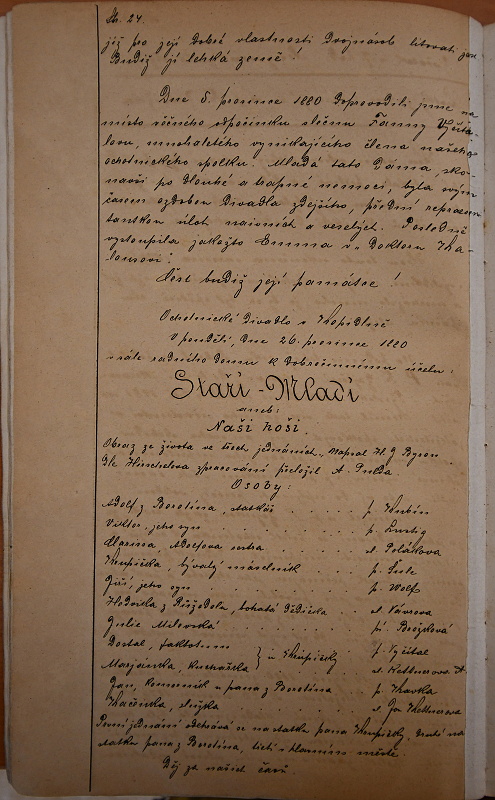 Str. 24.
již pro její dobré vlastnosti dvojnásob litovati jest
Budiž jí lehká země!
Dne 5. prosince 1880 doprovodili jsme na
místo věčného odpočinku slečnu Fanny Vyčíta-
lovu, mnoholetého vynikajícího člena našeho
ochotnického spolku. Mladá tato dáma, sko-
navši po dlouhé a trapné nemoci, byla svým
časem ozdobou divadla zdejšího, přední represen-
tantkou úloh naivních a veselých. Posledně
vystoupila jakožto Emma v „Doktoru
".
Čest budiž její památce!
Ochotnické divadlo v Kopidlně
V pondělí, dne 26. prosince 1880
v sále radního domu k dobročinnému účelu:
Staří - Mladí
aneb:
Naši hoši.
Obraz ze života ve třech jednáních. Napsal H. J. Byron
Dle Hirschelova zpracování přeložil A. Pulda.
Osoby:
Adolf z Borotína, statkář . . . . p.
Viktor, jeho syn . . . . p. Lustig
, Adolfova sestra . . . . sl. Poláková
Krupička, bývalý máselník . . . . p. Šulc
Jiří, jeho syn . . . . p. Wolf
z , bohatá dědička . . sl. Vávrova
Julie Milevská . . . . pí. Brožková
Dostal, faktotum } u Krupičky p. Vyčítal
Marjánka, kuchařka sl. Kettnerova A.
Jan, komorník u pana z Borotína . . p. Kavka
Kačenka, služka . . . . sl. Kettnerova
První jednání odehrává se na statku pana Krupičky, druhé na
statku pana z Borotína, třetí v hlavním městě.
Děj za našich časů.